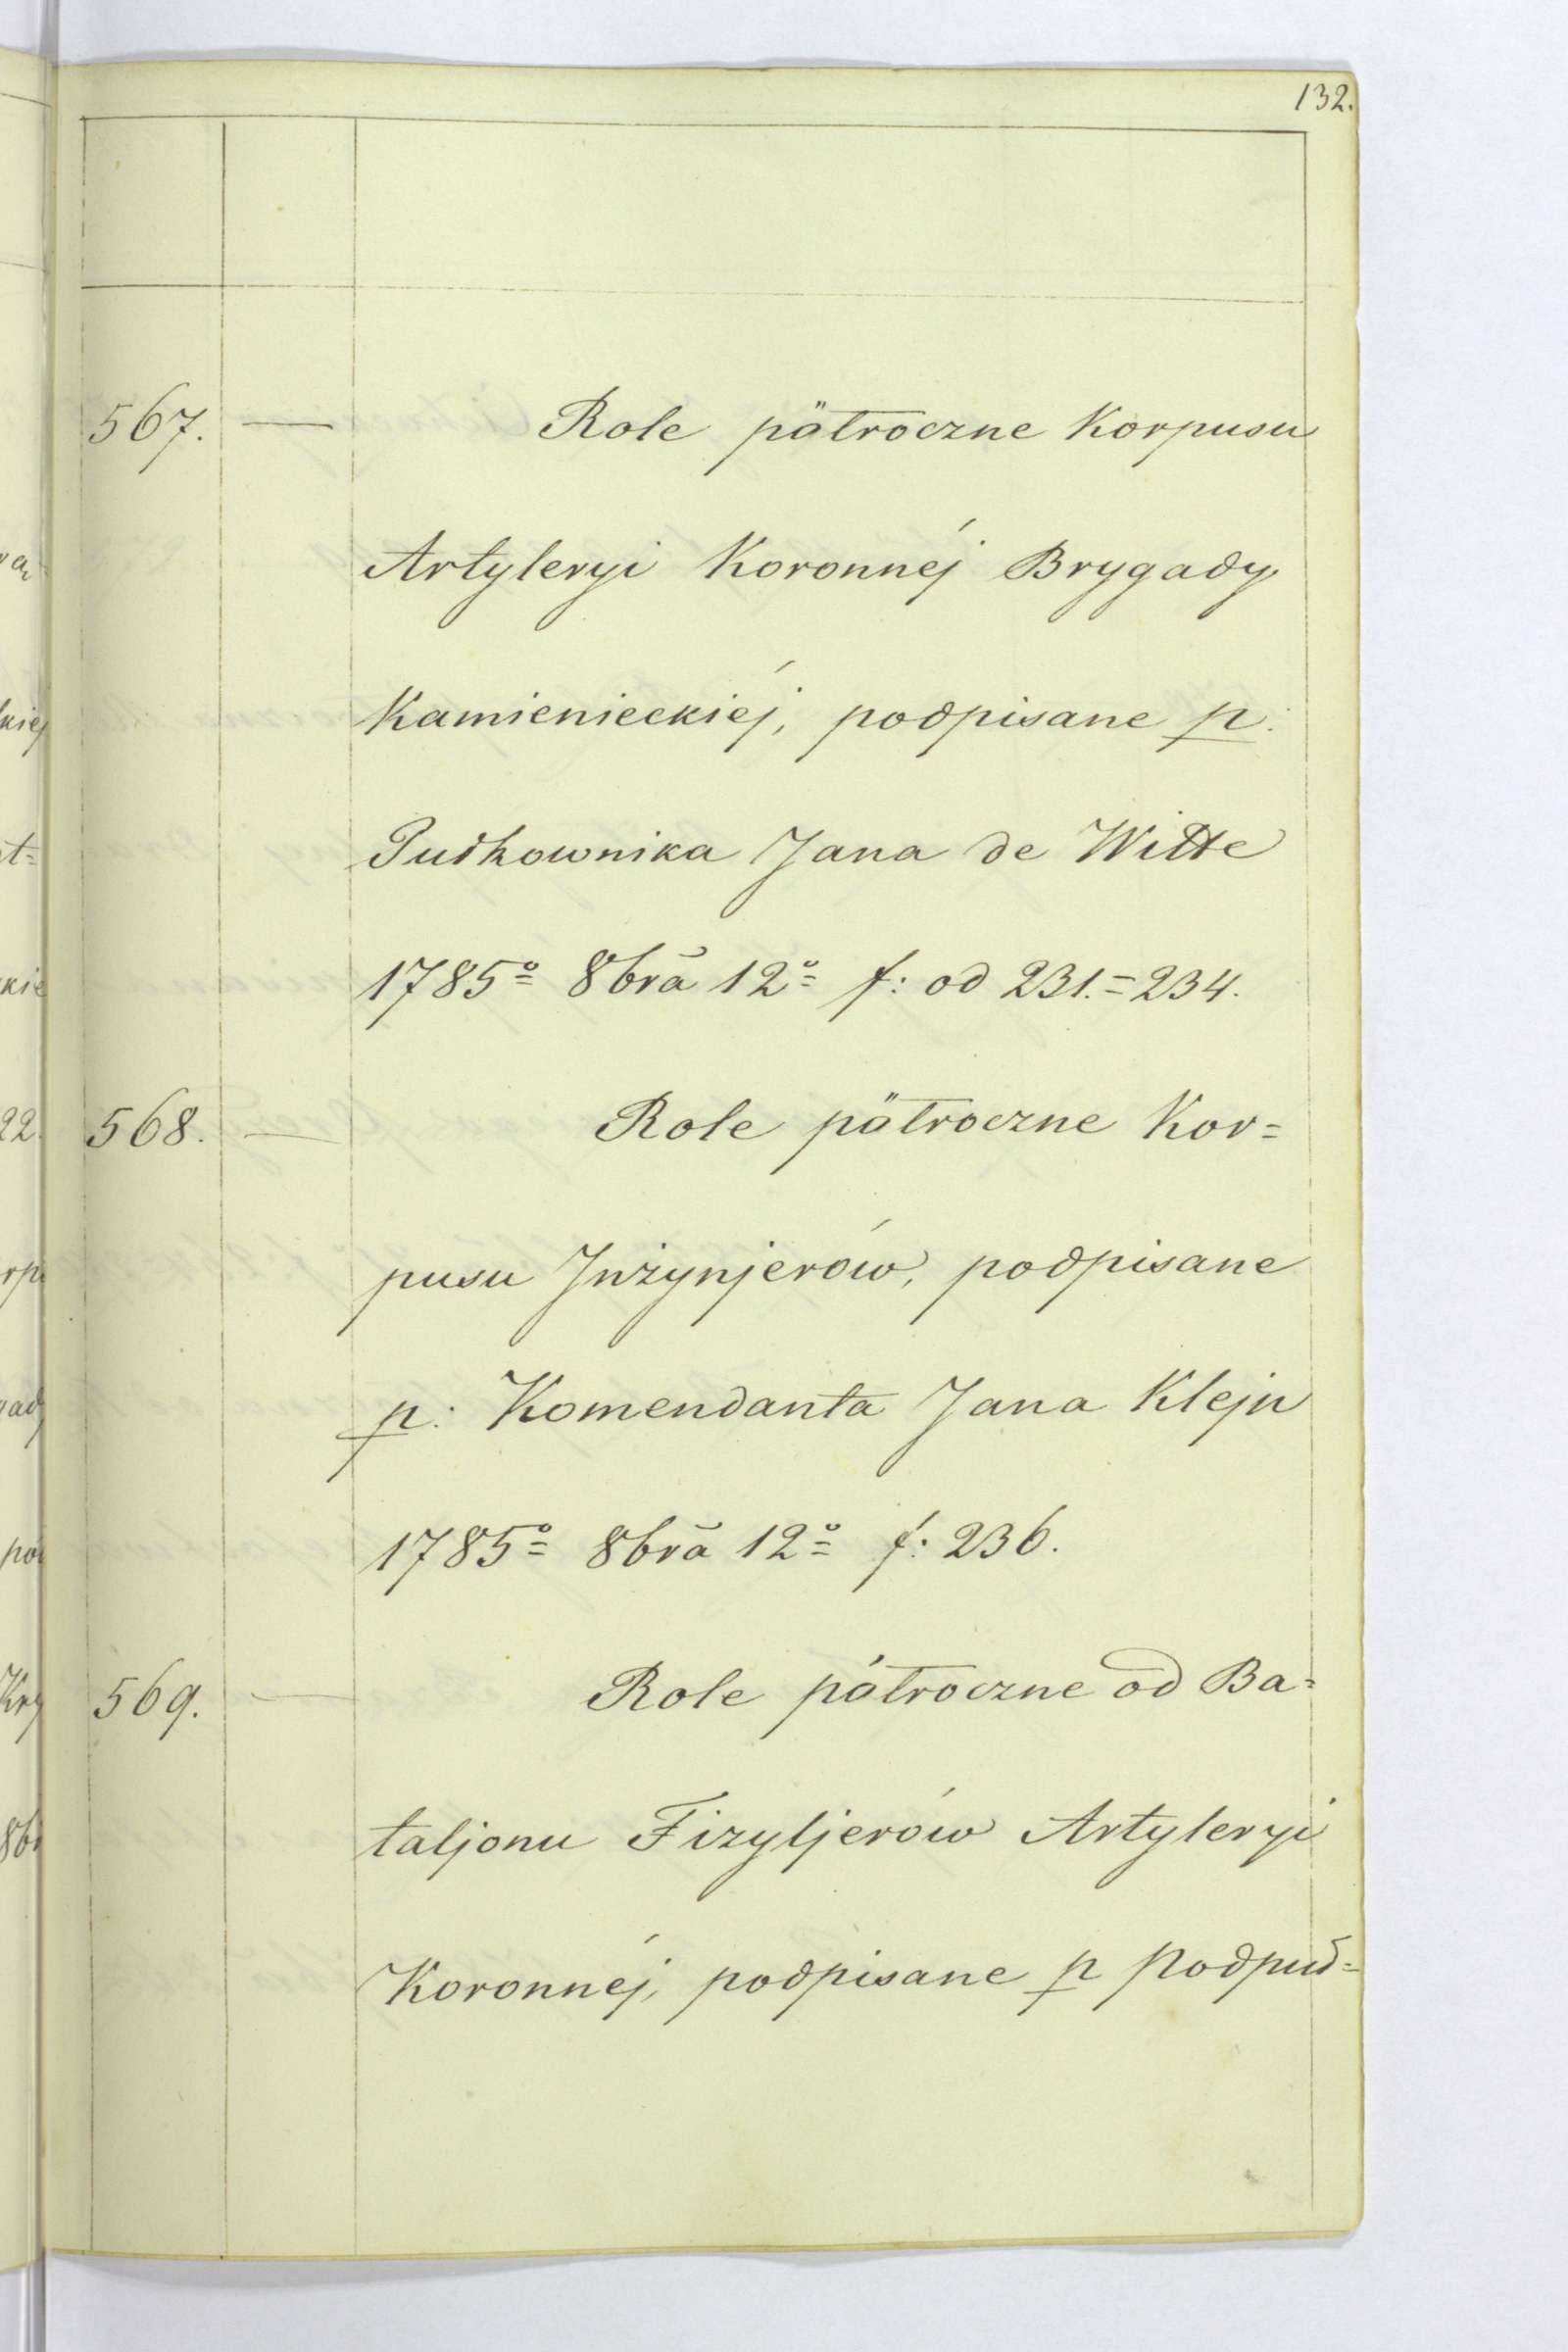 132.
567. — Role półroczne Korpusu
Artyleryi Koronnéj Brygady
Kamienieckiéj, podpisane p.
Pułkownika Jana de Witte
1785º 8brã 12º f: od 231.=234.
568. — Role półroczne Kor=
pusu Inżynjerów, podpisane
p: Komendanta Jana Klejn
1785º 8brã 12º f: 236.
569. — Role półroczne od Ba=
taljonu Fizyljerów Artyleryi
Koronnéj, podpisane p Podpuł=